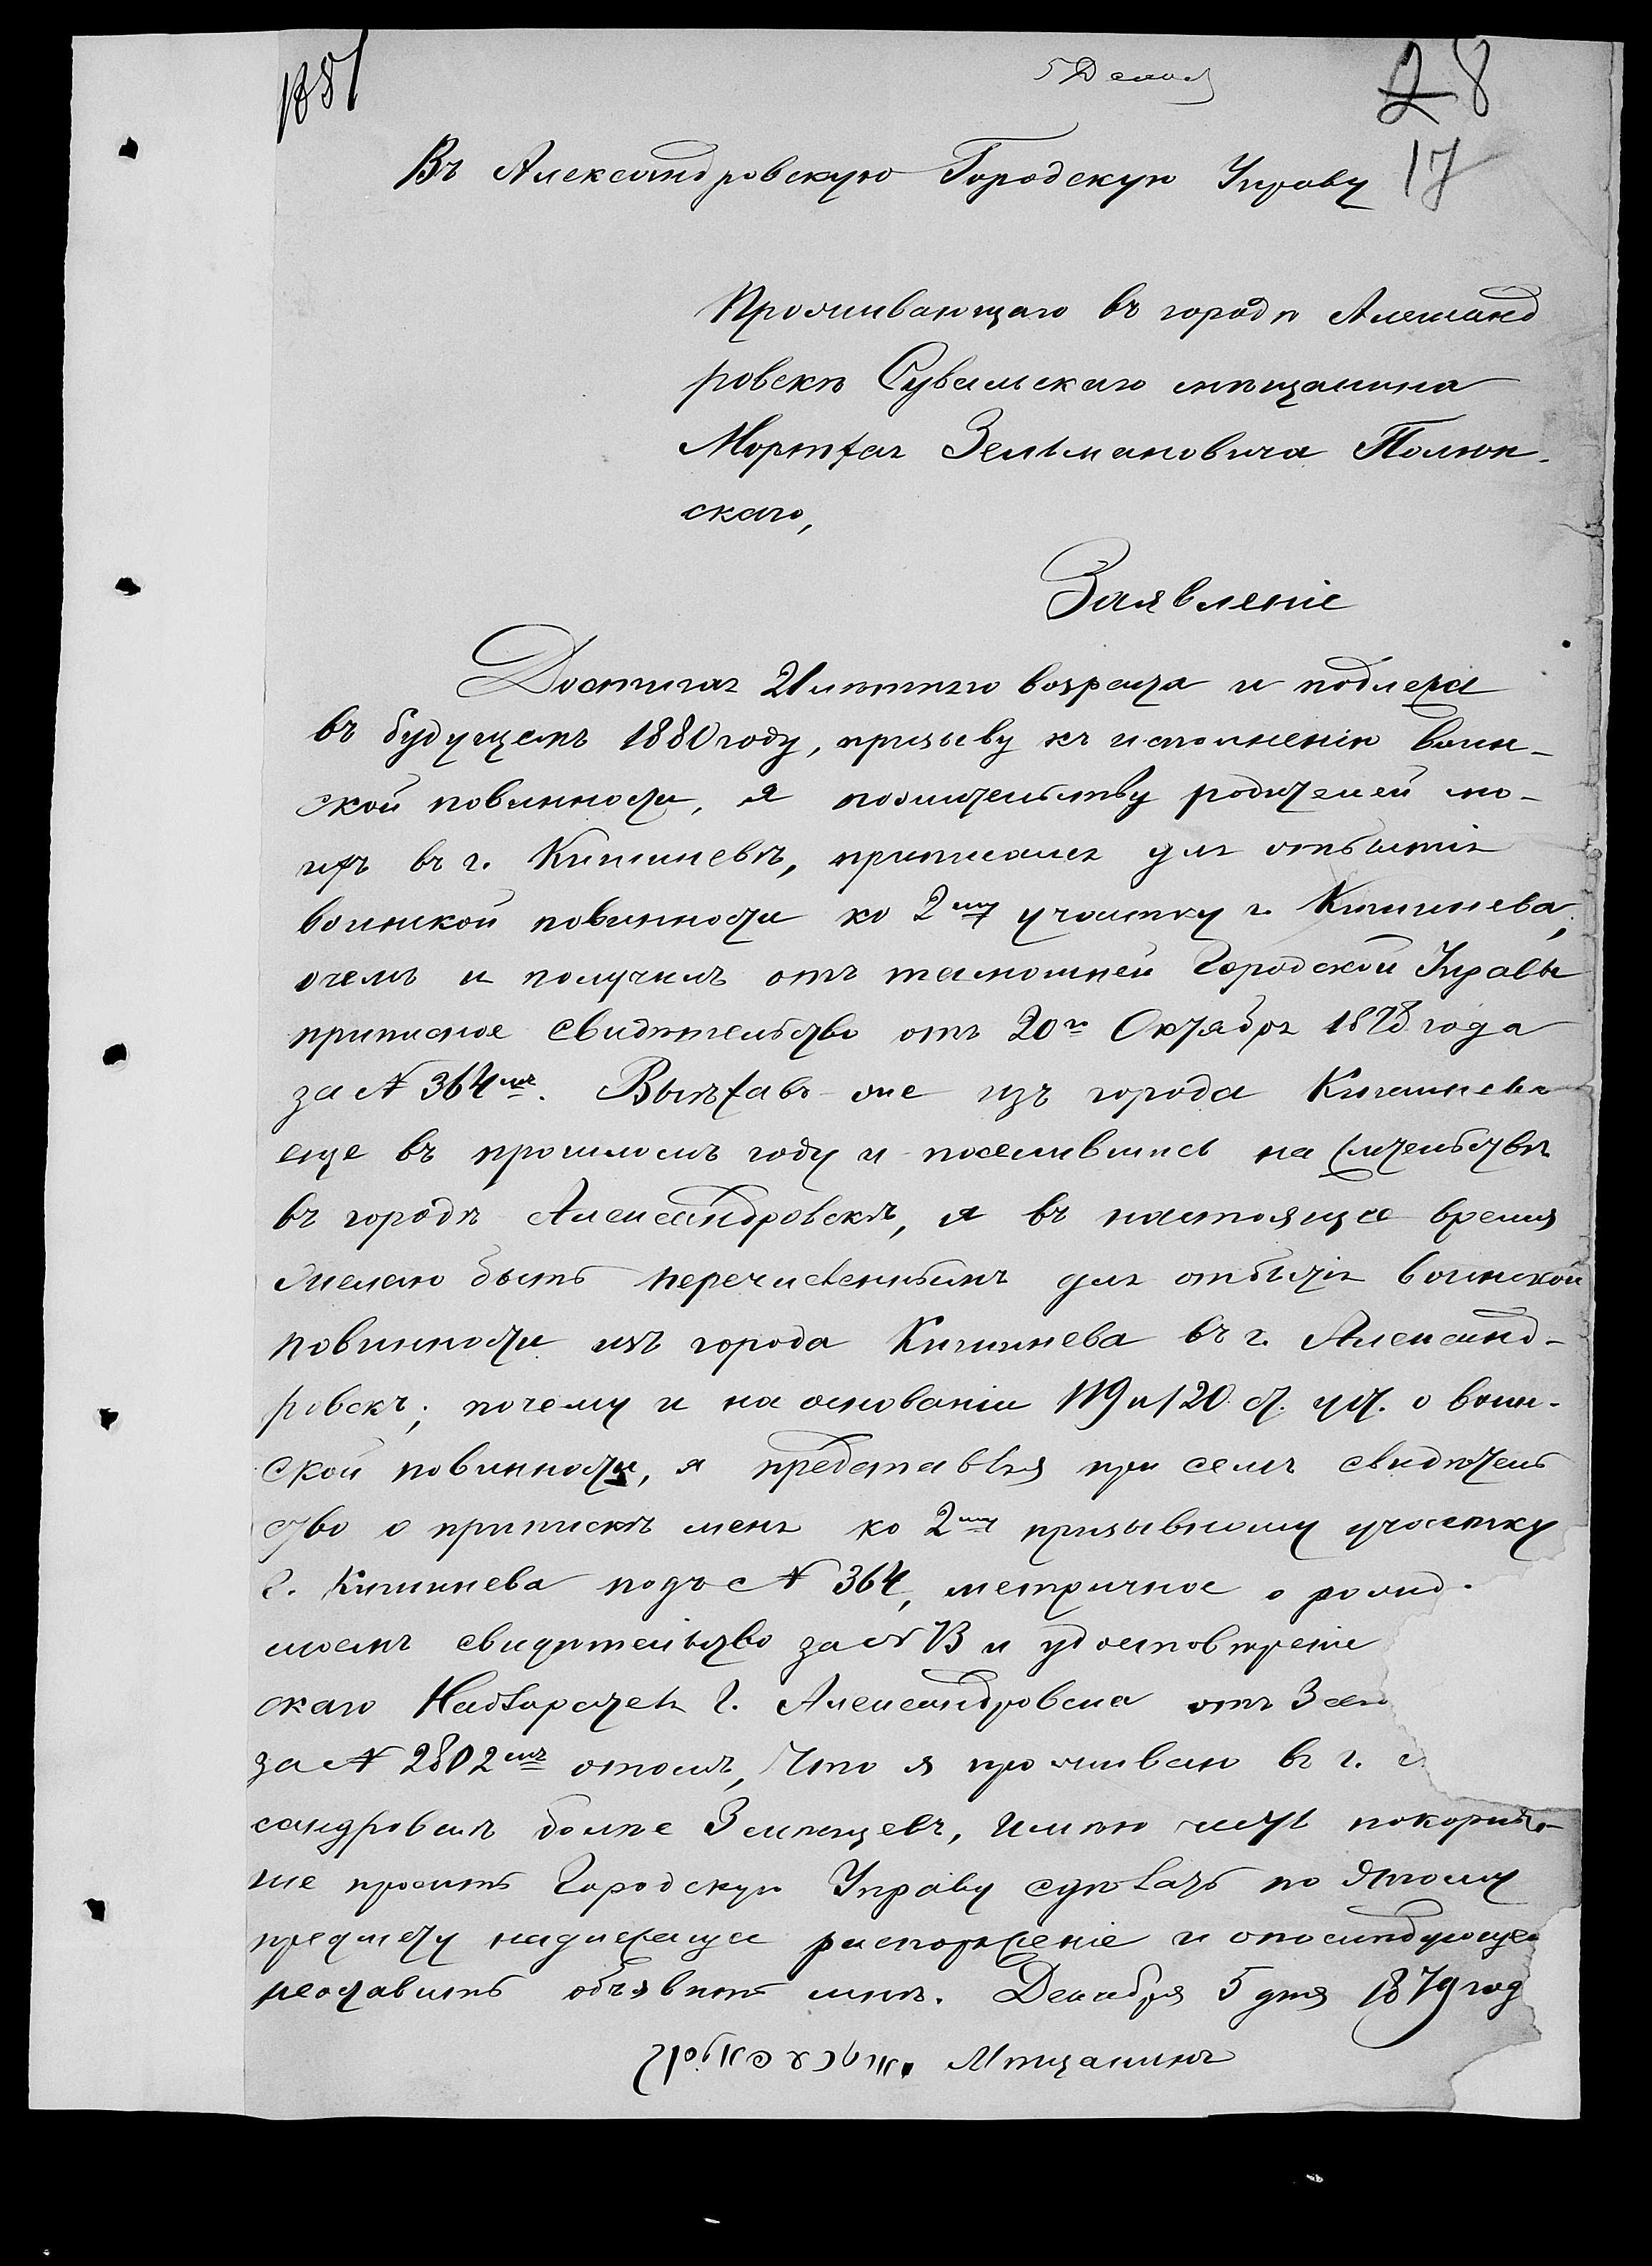 1881
5 Декаб
28
17
Въ Александровскую Городскую Управу
Проживающаго въ городѣ Александ
ровскѣ Сувальскаго мѣщанина
Мортхая Зельмановича Полюн-
скаго,
Заявленіе
Достигая 21 лѣтняго возраста и подлежа
въ будущемъ 1880 году, призыву къ исполненію воин-
ской повинности, я по жительству родителей мо-
ихъ въ г. Кишиневѣ, приписался для отбытія
воинской повинности ко 2му участку г. Кишинева,
о чемъ и получилъ отъ тамошней Городской Управы
приписное свидѣтельство отъ 20го Октября 1878 года
за № 364мъ. Выѣхавъ же изъ города Кишинева
еще въ прошломъ году и поселившись на жительствѣ
въ городѣ Александровскѣ, я въ настоящее время
желаю быть перечисленнымъ для отбытія воинской
повинности изъ города Кишинева въ г. Александ-
ровскъ; почему и на основаніи 119 и 120 ст. уст. о воин-
ской повинности, я представляя при семъ свидѣтель
ство о припискѣ меня ко 2му призывному участку
г. Кишинева подъ № 364, метричное о рожд.
моемъ свидѣтельство за № 13 и удостовѣреніе
скаго Надзирателя г. Александровска отъ 3 сего
за № 2802мъ о томъ, что я проживаю въ г.
сандровскѣ болѣе 3 мѣсяцевъ, имѣю честь покорнѣ-
ше просить Городскую Управу сдѣлать по этому
предмету надлежащее распоряженіе и о послѣдующем
не оставить объявить мнѣ. Декабря 5 дня 1879 год
Мѣщанинъ